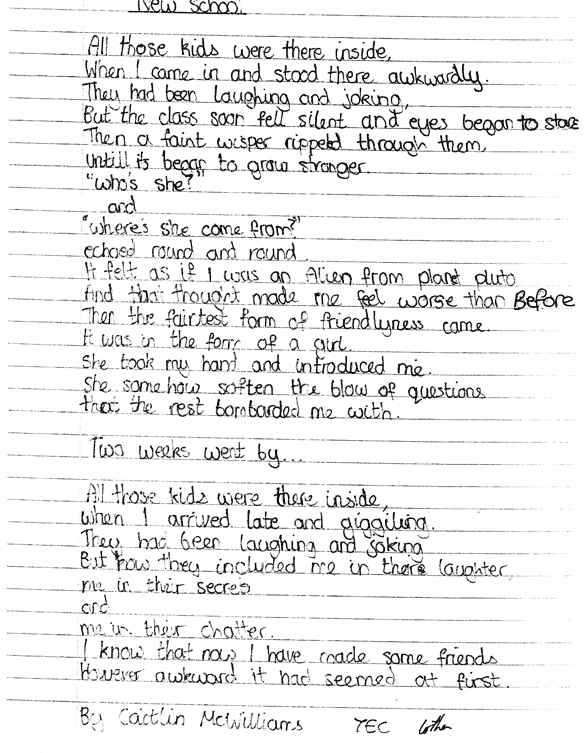 New School.
All those kids were there inside,
When I came in and stood there awkwardly.
They had been laughing and joking,
But the class soon fell silent and eyes began to stare
Then a faint wisper rippeld through them,
untill its began to grow stronger.
"who's she?"
and
"where's she come from?"
echoed round and round
It felt as if I was an Alien from planet pluto
And that thought made me feel worse than Before
Then the faintest form of friendlyness came.
It was in the form of a girl.
She took my hand and introduced me.
She somehow soften the blow of questions
that the rest bombarded me with.
Two weeks went by...
All those kids were there inside,
When I arrived late and giggiling.
They had been laughing and joking
But now they included me in there laughter,
me in their secrets
and
me in their chatter.
I know that now I have made some friends
However awkward it had seemed at first.
By Caitlin McWilliams TEC